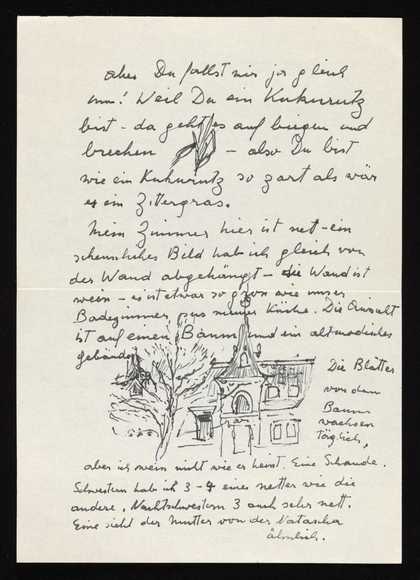 aber Du fallst mir ja gleich
um! Weil Du ein Kukurutz
bist - da geht es auf biegen und
brechen - also Du bist
wie ein Kukurutz so zart als wär
es ein Zittergras.
Mein Zimmer hier ist nett - ein
scheussliches Bild hab ich gleich von
der Wand abgehängt - die Wand ist
weiss - es ist etwas so gross wie unser
Badezimmer, plus meiner Küche. Die Aussicht
ist auf einen Baum und ein altmodisches
gebäude
Die Blätter
von dem
Baum
wachsen
täglich,
aber ich weiss nicht wie er heisst. Eine Schande.
Schwestern hab ich 3-4 eine netter wie die
andere, Nachtschwestern 3 auch sehr nett.
Eine sieht der Mutter von der Natascha
ähnlich.